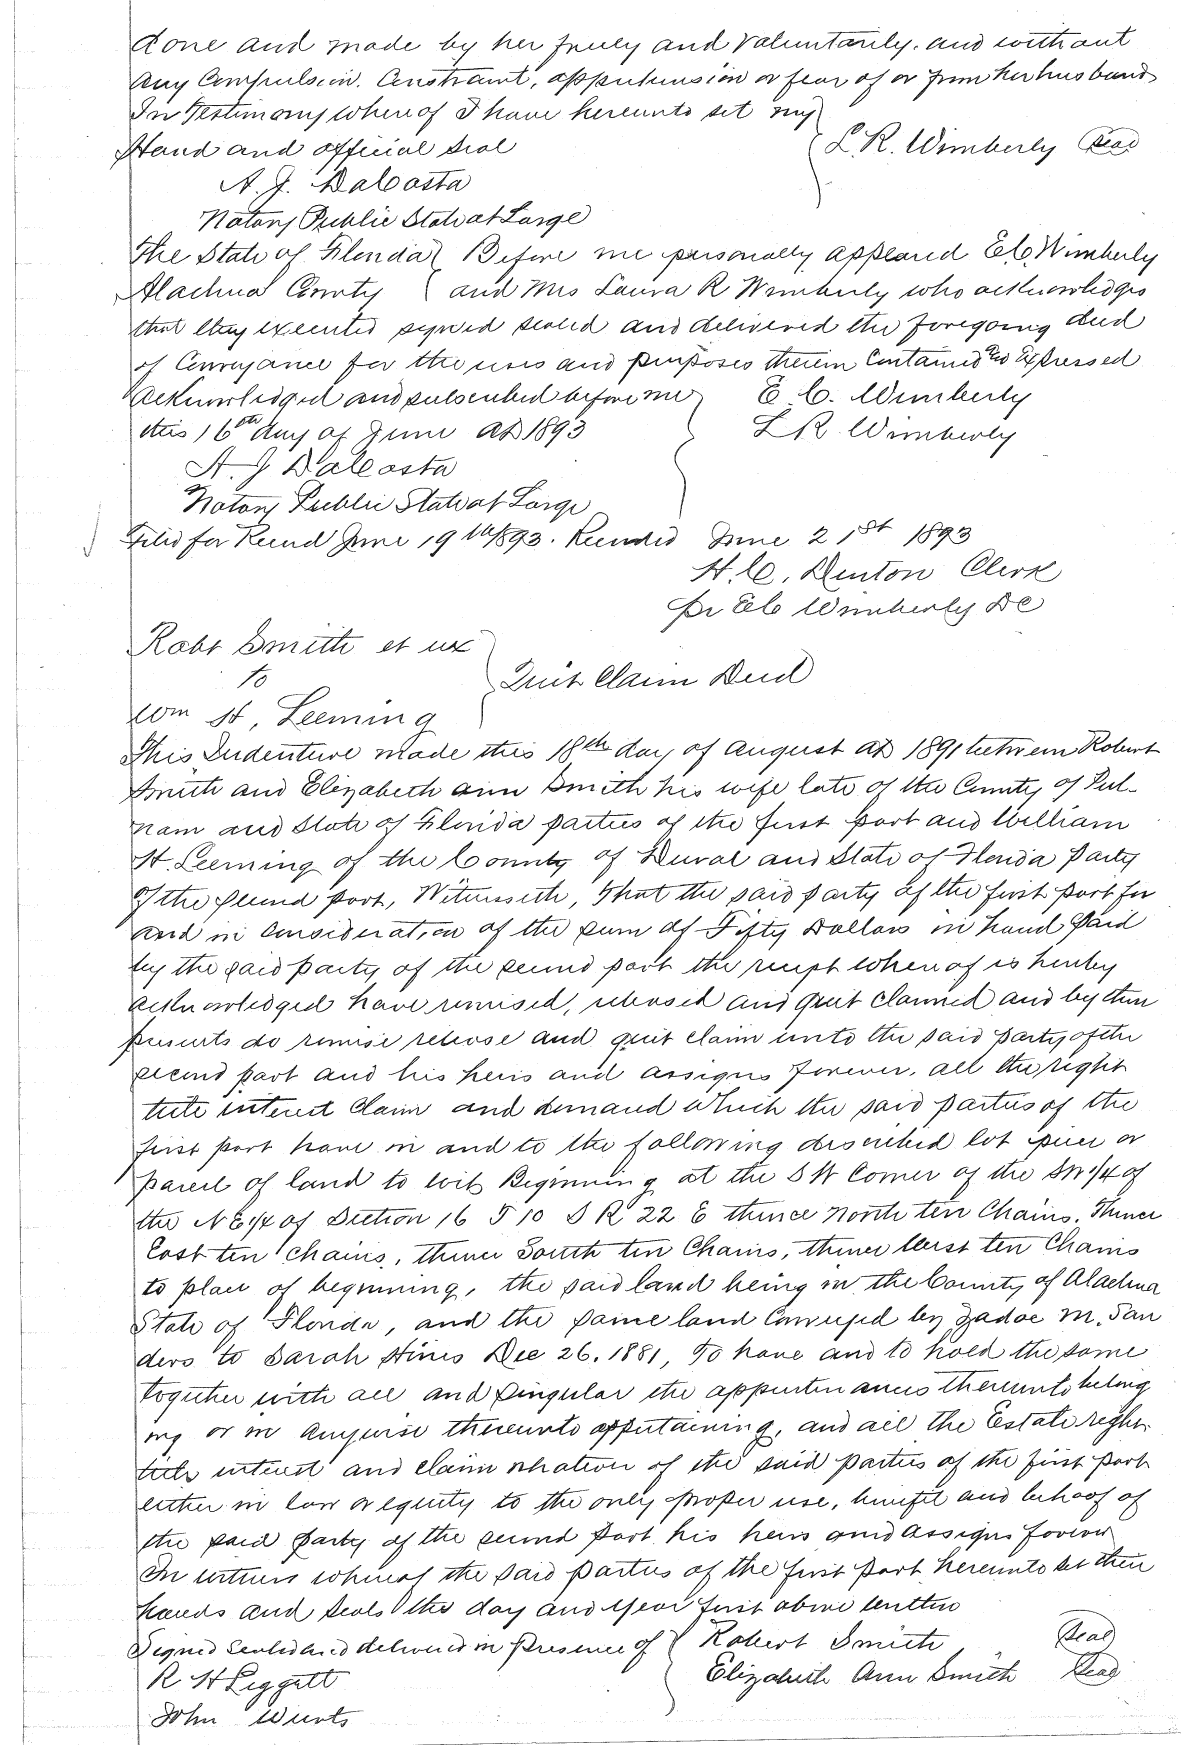 done and made by her freely and voluntarily, and without
any Compulsion, Constraint, apprehension or fear of or from her husband
In Testimony whereof I have hereunto set my
Hand and official Seal
L. R. Wimberly Seal
A. J. DaCosta
Notary Public State at Large
The State of Florida Before me personally appeared E C Wimberly
Alachua County and Mrs Laura R Wimberly who acknowledges
that they executed signed sealed and delivered the foregoing deed
of Conveyance for the uses and purposes therein Contained and Expressed
Acknowledged and subscribed before me E. C. Wimberly
this 16th day of June AD 1893 L R Wimberly
A. J DaCosta
Notary Public State at Large
Filed for Record June 19th 1893. Recorded June 21st 1893
H. C. Denton Clerk
pr E C Wimberly D C
Robt Smith et ux
to Quit Claim Deed
Wm H, Leeming
This Indenture made this 18th day of August AD 1891 between Robert
Smith and Elizabeth Ann Smith his wife late of the County of Put-
nam and State of Florida parties of the first part and William
H. Leeming of the County of Duval and State of Florida Party
of the second part, Witnesseth, That the said party of the first part for
and in Consideration of the sum of Fifty Dollars in hand paid
by the said party of the second part the receipt whereof is hereby
acknowledged have remised, released and quit claimed and by these
presents do remise release and quit claim unto the said party of the
second part and his heirs and assigns forever, all the right
title interest Claim and demand which the said parties of the
first part have in and to the following described lot piece or
parcel of land to wit Beginning at the S W Corner of the SW 1/4 of
the N E 1/4 of Section 16 T 10 S R 22 E thence North ten Chains, Thence
East ten chains, thence South ten Chains, thence West ten Chains
to place of beginning, the said land being in the County of Alachua
State of Florida, and the same land Conveyed by Zadoc M. San
ders to Sarah Hines Dec 26. 1881, To have and to hold the same
together with all and singular the appurtenances thereunto belong
ing or in anywise thereunto appertaining, and all the Estate right
title interest and claim whatever of the said parties of the first part
either in law or equity to the only proper use, benefit and behoof of
the said party of the second part his heirs and assigns forever
In witness whereof the said parties of the first part hereunto set their
hands and seals the day and year first above written
Signed sealed and delivered in presence of Robert Smith Seal
R H Leggett Elizabeth Ann Smith Seal
John Wurts